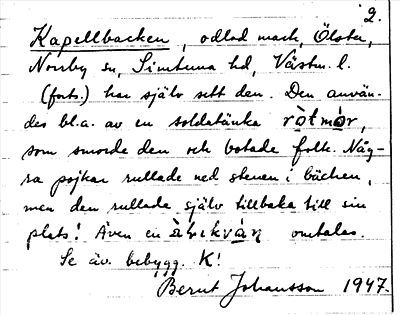 2.
Kapellbacken, odlad mark, Ölsta,
Norrby sn, Simtuna hd, Västm. l.
(forts.) har själv sett den. Den använ-
des bl.a. av en soldatänka ròtmór,
som smorde den och botade folk. Någ-
ra pojkar rullade ned stenen i bäcken,
men den rullade själv tillbaka till sin
plats! Även en omtalas.
Se äv. bebygg. K!
Bernt Johansson 1947.